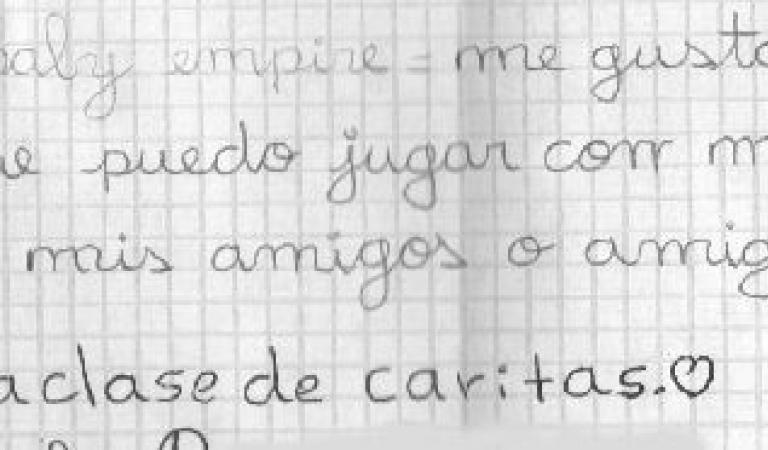 baby empire = me gusta
puedo jugar con
mis amigos o amig
a clase de caritas.♡